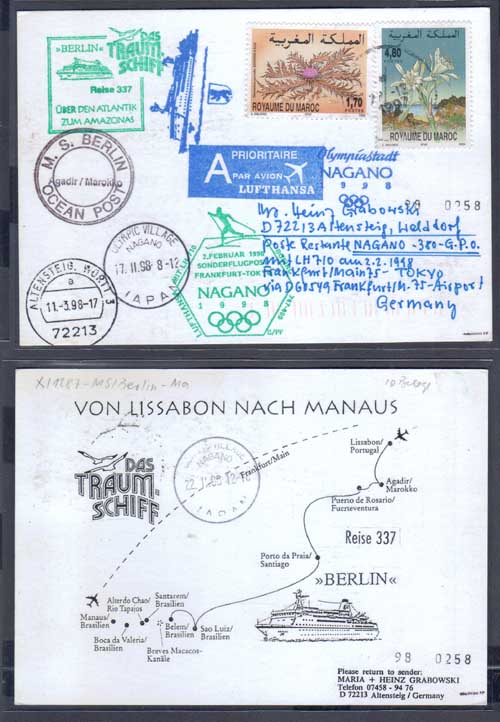 »BERLIN«
DAS
TRAUM-
SCHIFF
Reise 337
ÜBER DEN ATLANTIK
ZUM AMAZONAS
المملكة المغربية
1,70
ROYAUME DU MAROC
المملكة المغربية
4,80
ROYAUME DU MAROC
M. S. BERLIN
Agadir / Marokko
OCEAN POST
A PRIORITAIRE
PAR AVION
LUFTHANSA
Olympiastadt
NAGANO
1998
98 0258
OLYMPIC VILLAGE
NAGANO
17. II. 98. 8-12
JAPAN
2. FEBRUAR 1998
SONDERFLUGPOST
FRANKFURT-TOK
NAGANO
1998
LUFTHANSA
747-400
ALTENSTEIG, WÜRTT 3
a
11.-3.98-17
72213
Mr. Heinz Grabowski
D 72213 Altensteig, Walddorf
Poste Restante NAGANO -380-G.P.O.
mit LH710 am 2.2.1998
Frankfurt/Main 75 - TOKYO
via D60549 Frankfurt/M.75-Airport
Germany
VON LISSABON NACH MANAUS
DAS
TRAUM-
SCHIFF
NAGANO
JAPAN
Frankfurt/Main
Lissabon/
Portugal
Agadir/
Marokko
Puerto de Rosario/
Fuerteventura
Reise 337
Porto da Praia/
Santiago
»BERLIN«
Manaus/
Brasilien
Alter do Chao/
Rio Tapajos
Santarem/
Brasilien
Boca da Valeria/
Brasilien
Belem/
Brasilien
Breves Macacos-
Kanäle
Sao Luiz/
Brasilien
98 0258
Please return to sender:
MARIA + HEINZ GRABOWSKI
Telefon 07458 - 94 76
D 72213 Altensteig / Germany